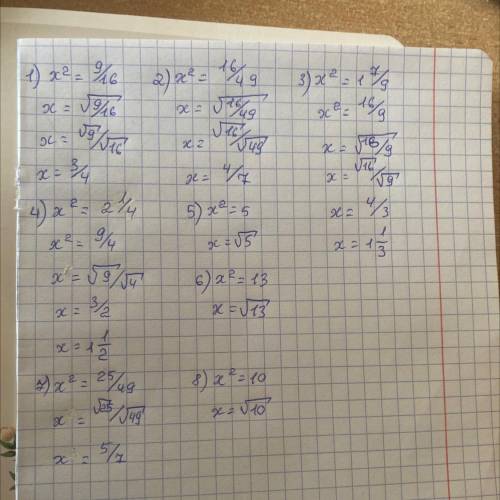 1) x² = 9/16
x = √9/16
x = √9/√16
x = 3/4
2) x² = 16/49
x = √16/49
x = √16/√49
x = 4/7
3) x² = 1 7/9
x² = 16/9
x = √16/9
x = √16/√9
x = 4/3
x = 1 1/3
4) x² = 2 1/4
x² = 9/4
x = √9/√4
x = 3/2
x = 1 1/2
5) x² = 5
x = √5
6) x² = 13
x = √13
7) x² = 25/49
x = √25/√49
x = 5/7
8) x² = 10
x = √10